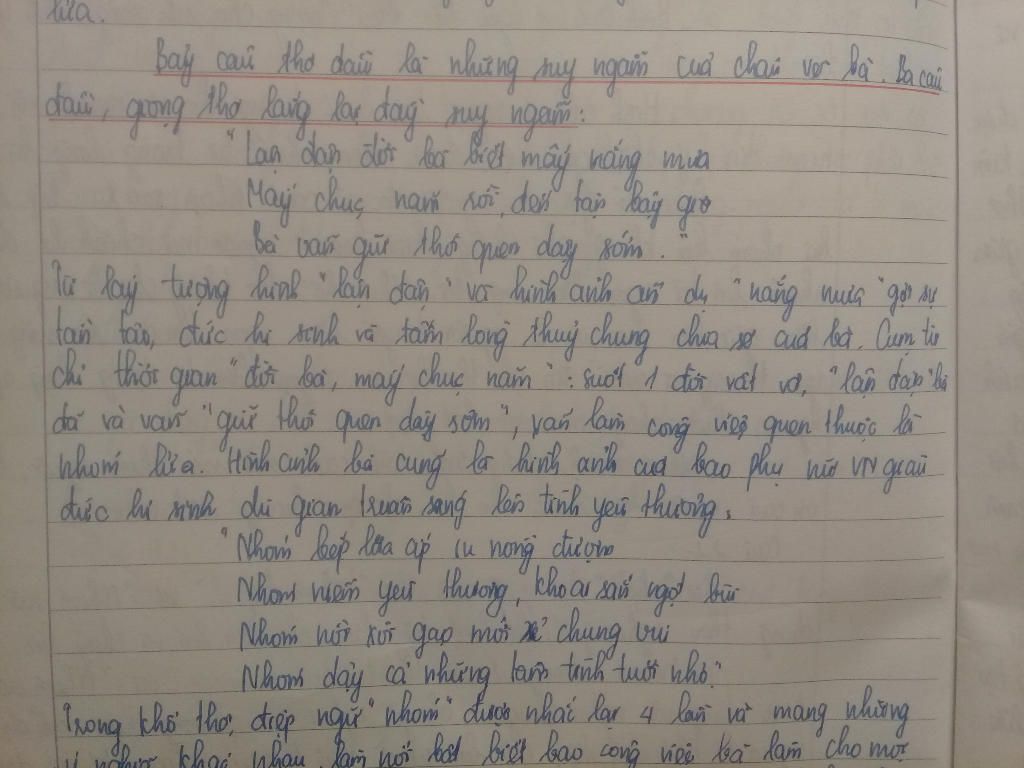 lửa.
Bảy câu thơ đầu là những suy ngẫm của cháu về bà. Ba câu
đầu, giọng thơ lắng lại đầy suy ngẫm:
"Lận đận đời bà biết mấy nắng mưa
Mấy chục năm rồi, đến tận bây giờ
Bà vẫn giữ thói quen dậy sớm."
Từ láy tượng hình "lận đận" và hình ảnh ẩn dụ "nắng mưa" gợi sự
tần tảo, đức hi sinh và tấm lòng thuỷ chung của bà. Cụm từ
chỉ thời gian "đời bà, mấy chục năm": suốt 1 đời vất vả, "lận đận" bà
đã và vẫn "giữ thói quen dậy sớm", vẫn làm công việc quen thuộc là
nhóm lửa. Hình ảnh bà cũng là hình ảnh của bao phụ nữ VN giàu
đức hi sinh dù gian truân sáng lên tình yêu thương.
"Nhóm bếp lửa ấp iu nồng đượm
Nhóm niềm yêu thương, khoai sắn ngọt bùi
Nhóm nồi xôi gạo mới chung vui
Nhóm dậy cả những tâm tình tuổi nhỏ"
Trong khổ thơ, điệp ngữ "nhóm" được nhắc lại 4 lần và mang những
ý nghĩa khác nhau, làm nổi bật biết bao công việc bà làm cho mọi